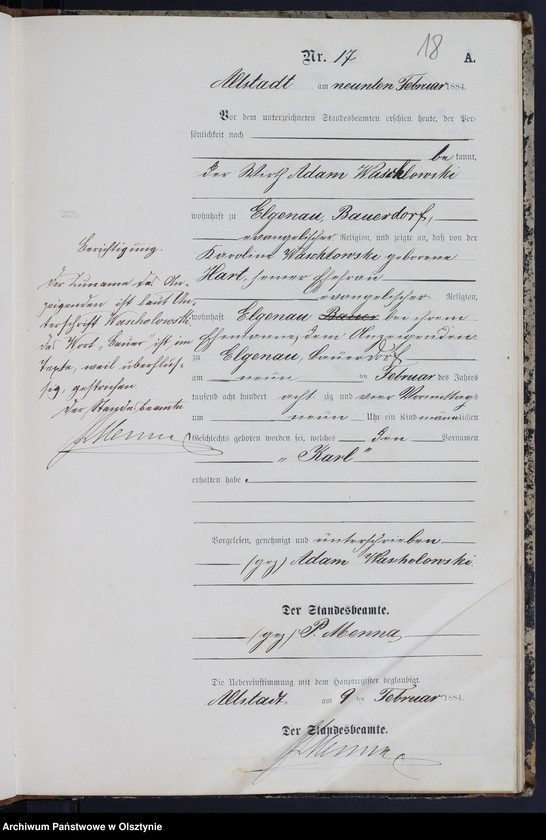 18
Nr. 17 A.
Altstadt am neunten Februar 1884.
Vor dem unterzeichneten Standesbeamten erschien heute, der Per-
sönlichkeit nach
bekannt,
der Wirth Adam Waschlowski
wohnhaft zu Elgenau, Bauerdorf,
evangelischer Religion, und zeigte an, daß von der
Karoline Waschlowski geborene
Hart, seiner Ehefrau
evangelischer Religion,
wohnhaft Elgenau Bauer bei ihrem
Ehemanne, dem Anzeigenden
zu Elgenau, Bauerdorf
am neun ten Februar des Jahres
tausend acht hundert acht zig und vier Vormittags
um neun Uhr ein Kind männlichen
Geschlechts geboren worden sei, welches den Vornamen
„Karl"
erhalten habe.
Vorgelesen, genehmigt und unterschrieben
(gez) Adam Wascholowski.
Der Standesbeamte.
(gez) P. Menna
Die Uebereinstimmung mit dem Hauptregister beglaubigt.
Altstadt am 9 ten Februar 1884.
Der Standesbeamte.
Menna
Berichtigung.
Der Zuname des An-
zeigenden ist laut Un-
terschrift Wascholowski
das Wort „Bauer" ist im
Texte, weil überflüs-
sig, gestrichen.
Der Standesbeamte
Menna
Archiwum Państwowe w Olsztynie